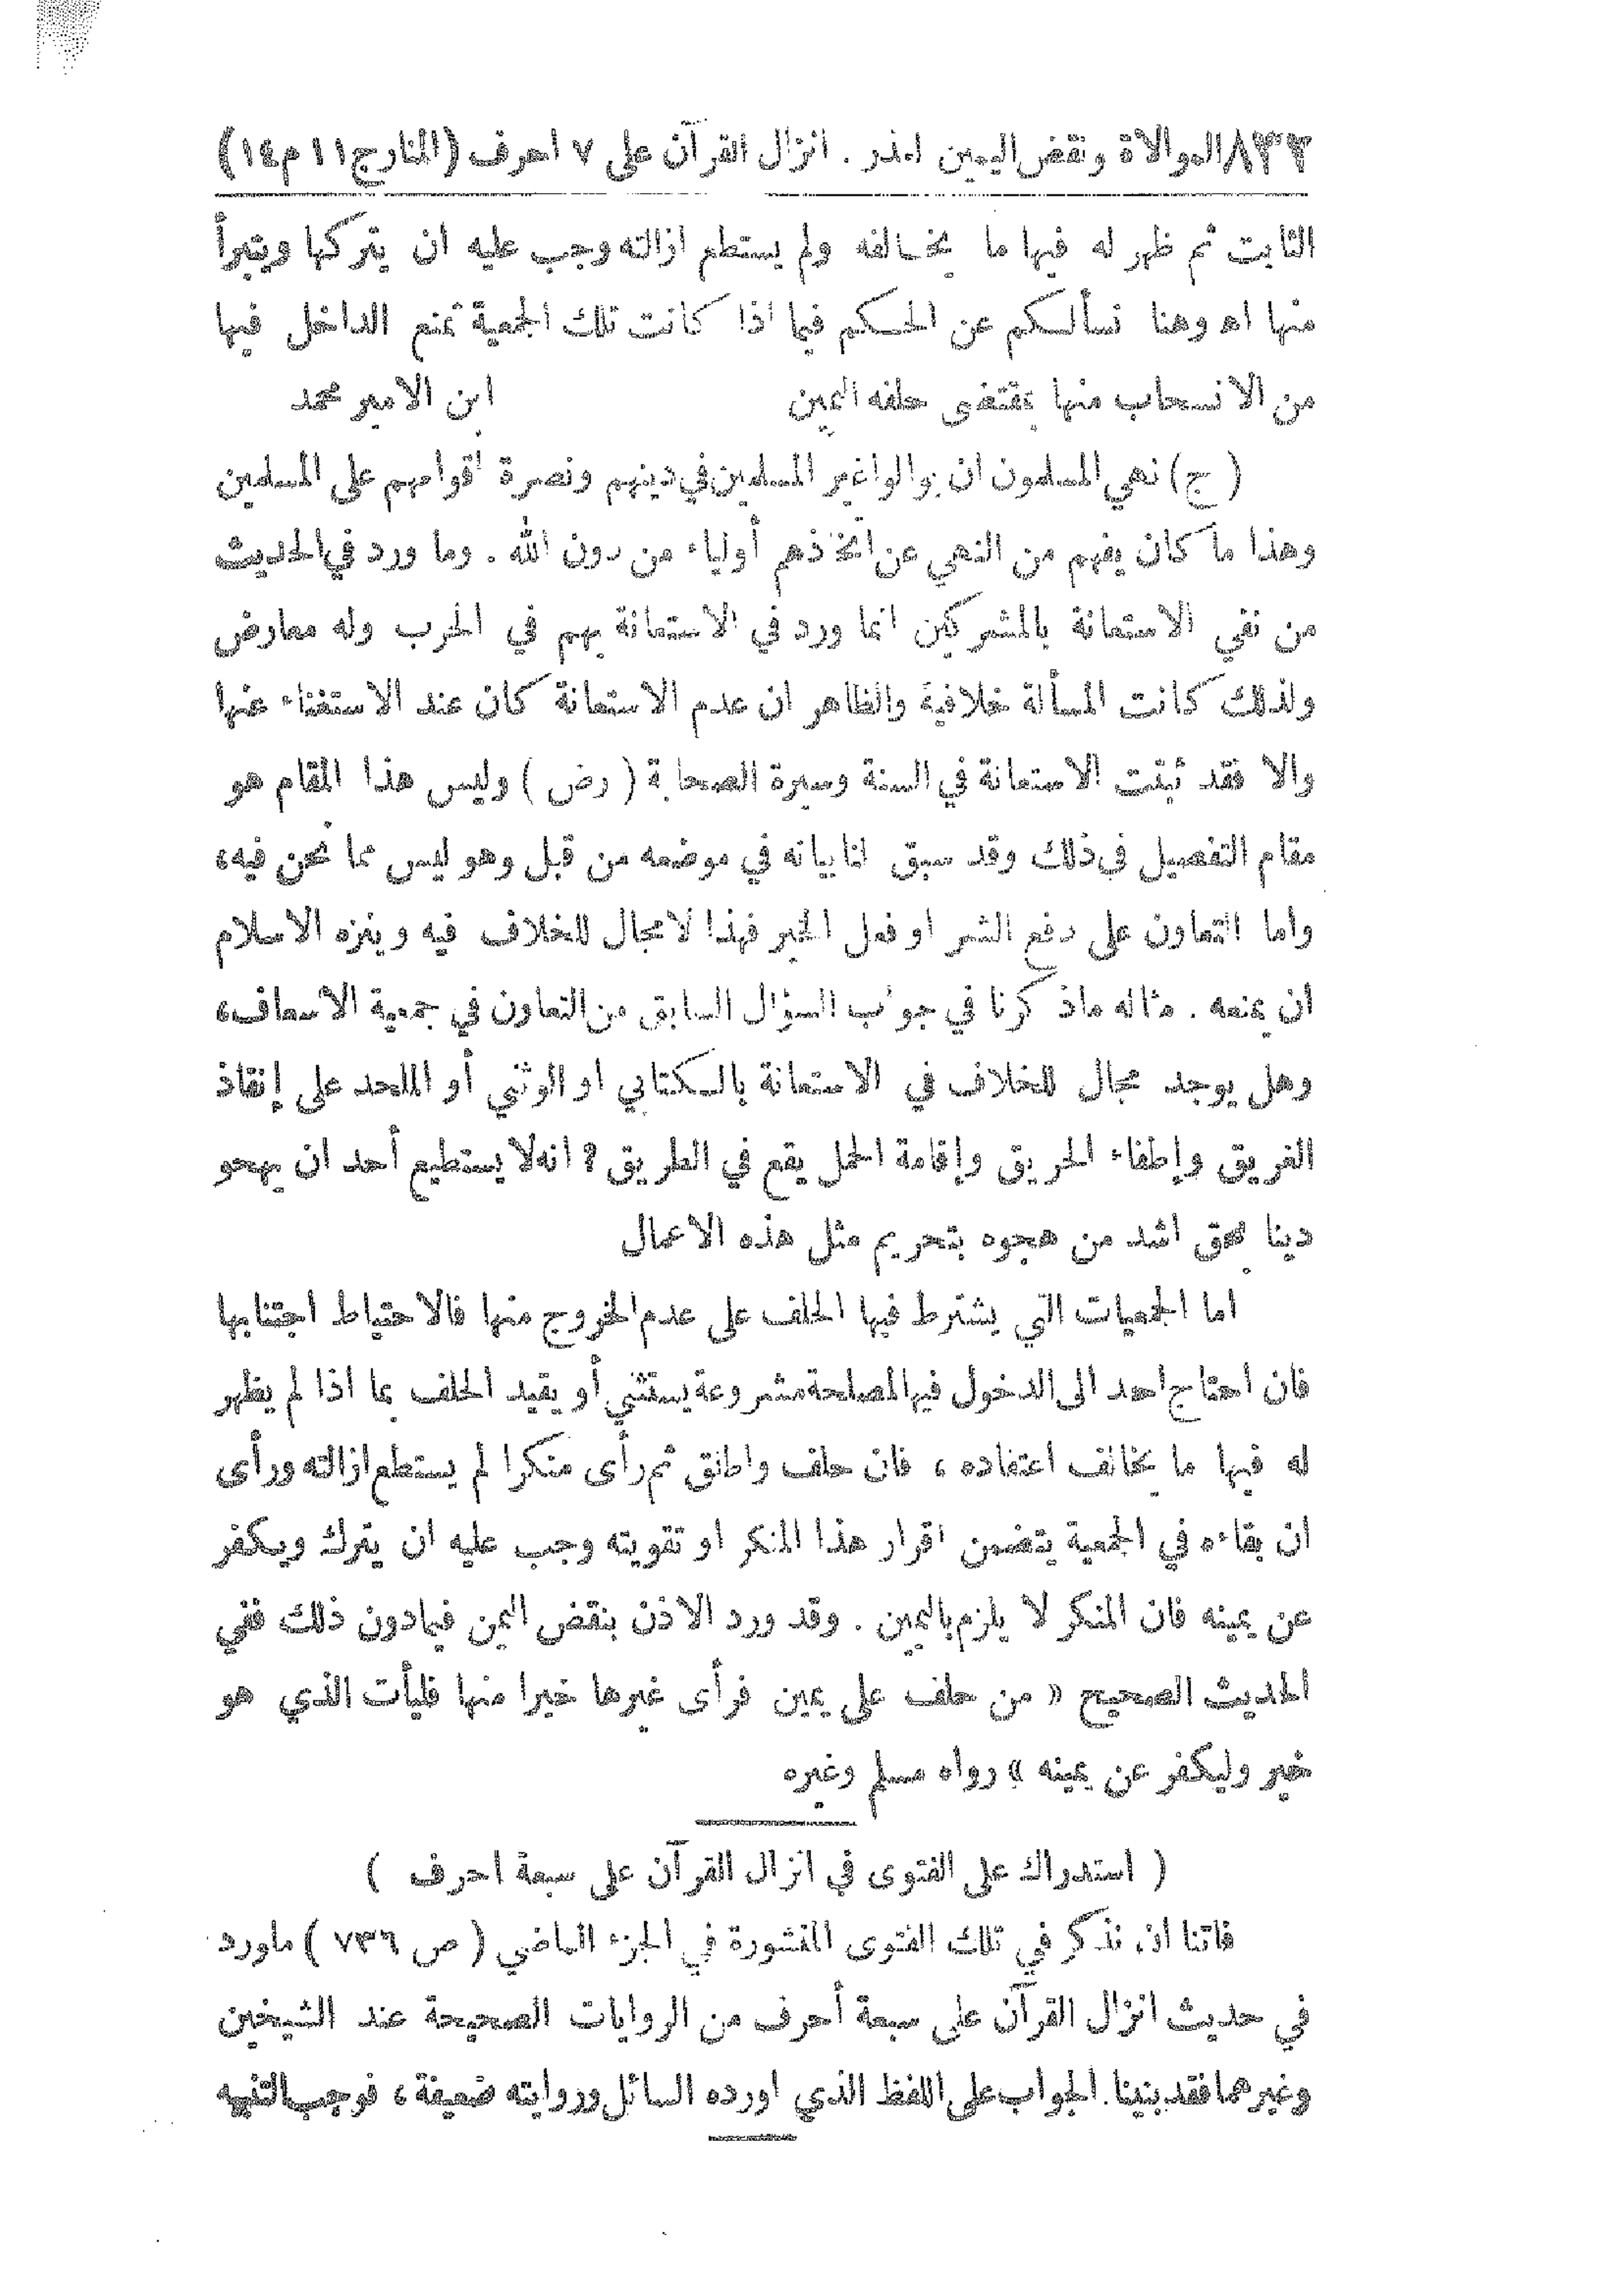 ٨٣٣ الموالاة ونقض اليمين لعذر . انزال القرآن على ٧ احرف (المنار ج ١١ م ١٤)
الثابت ثم ظهر له فيها ما يخالفه ولم يستطع ازالته وجب عليه ان يتركها ويتبرأ
منها اه وهنا نسألكم عن الحكم فيما اذا كانت تلك الجمعية تمنع الداخل فيها
من الانسحاب منها بمقتضى حلفه اليمين ابن الامير محمد
(ج) نهي المسلمون ان يوالوا غير المسلمين في دينهم ونصرة اقوامهم على المسلمين
وهذا ما كان يفهم من النهي عن اتخاذهم أولياء من دون الله . وما ورد في الحديث
من نفي الاستعانة بالمشركين انما ورد في الاستعانة بهم في الحرب وله معارض
ولذلك كانت المسألة خلافية والظاهر ان عدم الاستعانة كان عند الاستغناء عنها
والا فقد ثبتت الاستعانة في السنة وسيرة الصحابة (رض) وليس هذا المقام هو
مقام التفصيل في ذلك وقد سبق لنا بيانه في موضعه من قبل وهو ليس مما نحن فيه،
واما التعاون على دفع الشر او فعل الخير فهذا لا مجال للخلاف فيه وينزه الاسلام
ان يمنعه . مثاله ماذكرنا في جواب السؤال السابق من التعاون في جمعية الاسعاف،
وهل يوجد مجال للخلاف في الاستعانة بالكتابي او الوثني أو الملحد على إنقاذ
الغريق وإطفاء الحريق وإقامة الحمل يقع في الطريق؟ انه لا يستطيع أحد ان يهجو
دينا بحق اشد من هجوه بتحريم مثل هذه الاعمال
اما الجمعيات التي يشترط فيها الحلف على عدم الخروج منها فالاحتياط اجتنابها
فان احتاج احد الى الدخول فيها لمصلحة مشروعة يستثني أو يقيد الحلف بما اذا لم يظهر
له فيها ما يخالف اعتقاده ، فان حلف واطلق ثم رأى منكرا لم يستطع ازالته ورأى
ان بقاءه في الجمعية يتضمن اقرار هذا المنكر او تقويته وجب عليه ان يترك ويكفر
عن يمينه فان المنكر لا يلزم باليمين . وقد ورد الاذن بنقض اليمن فيمادون ذلك ففي
الحديث الصحيح « من حلف على يمين فرأى غيرها خيرا منها فليأت الذي هو
خير وليكفر عن يمينه » رواه مسلم وغيره
( استدراك على الفتوى في انزال القرآن على سبعة احرف )
فاتنا ان نذكر في تلك الفتوى المنشورة في الجزء الماضي ( ص ٧٣٦ ) ماورد
في حديث انزال القرآن على سبعة أحرف من الروايات الصحيحة عند الشيخين
وغيرهما فقد بنينا الجواب على اللفظ الذي اورده السائل وروايته ضعيفة ، فوجب التنبيه